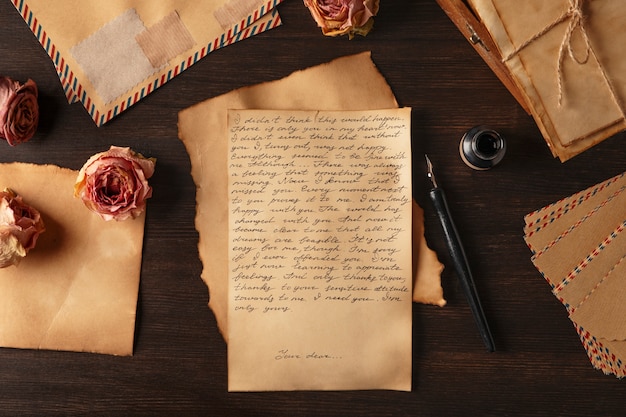 I didn't think this would happen.
There is only you in my heart now.
I didn't even think that without
you I turns out, was not happy.
Everything seemed to be fine with
me although... There was always
a feeling that something was
missing. Now I know that I
missed you. Every moment next
to you proves it to me. I am truly
happy with you. The world has
changed with you. And now it
became clear to me that all my
dreams are feasible. It's not
easy for me, though. I'm sorry
if I ever offended you. I'm
just now learning to appreciate
feelings. And only thanks to you,
thanks to your sensitive attitude
towards to me. I need you. I'm
only yours
Your dear...